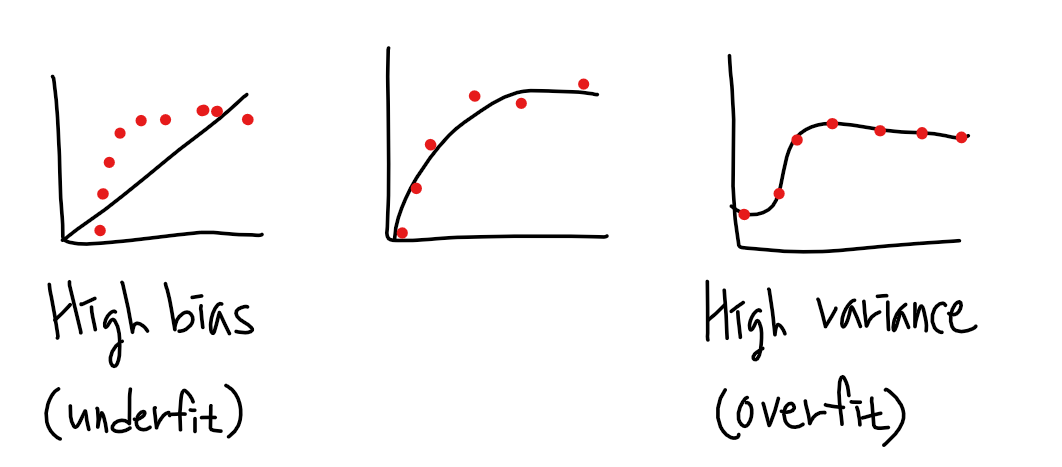 High bias
(underfit)
High variance
(overfit)